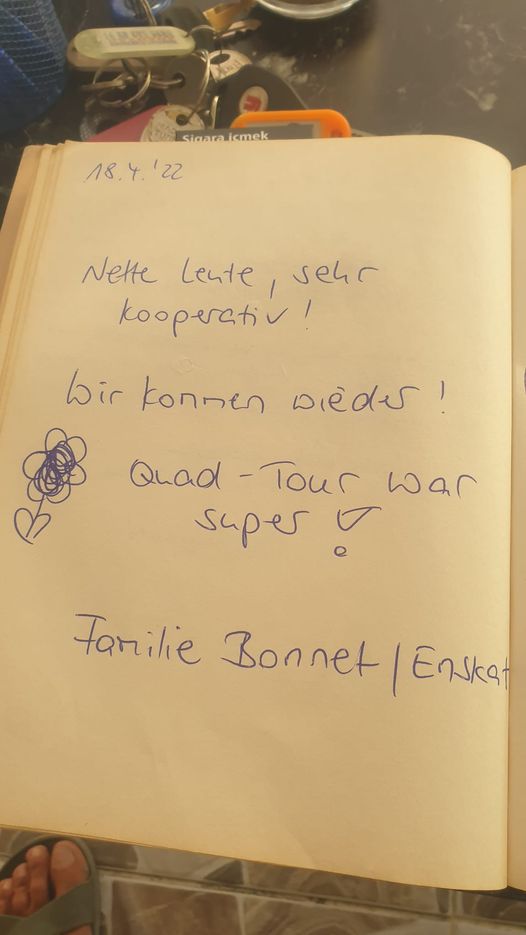 Sigara içmek
18.4.'22
Nette Leute, sehr
kooperativ!
Wir kommen wieder!
Quad-Tour war
super!
Familie Bonnet / Enskat